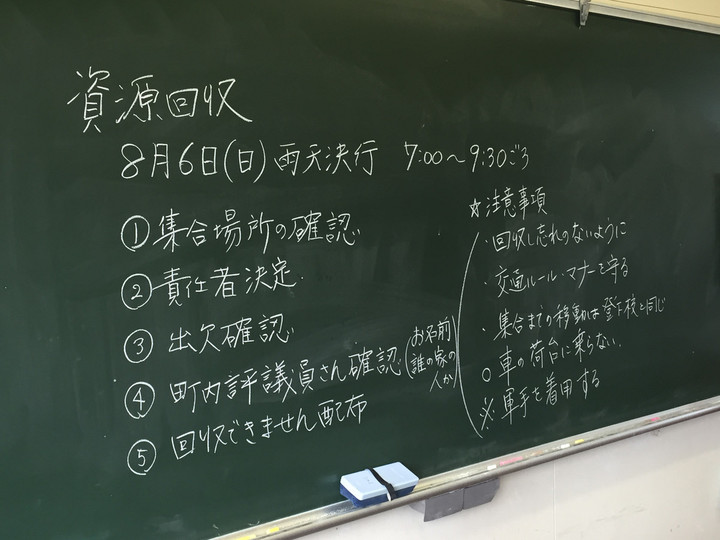 資源回収
8月6日(日)雨天決行 7:00〜9:30ごろ
①集合場所の確認
②責任者決定
③出欠確認
④町内評議員さん確認(お名前
誰の家の
人か
⑤回収できません配布
☆注意事項
・回収し忘れのないように
・交通ルール・マナーを守る
・集合までの移動は登下校と同じ
○車の荷台に乗らない。
※軍手を着用する